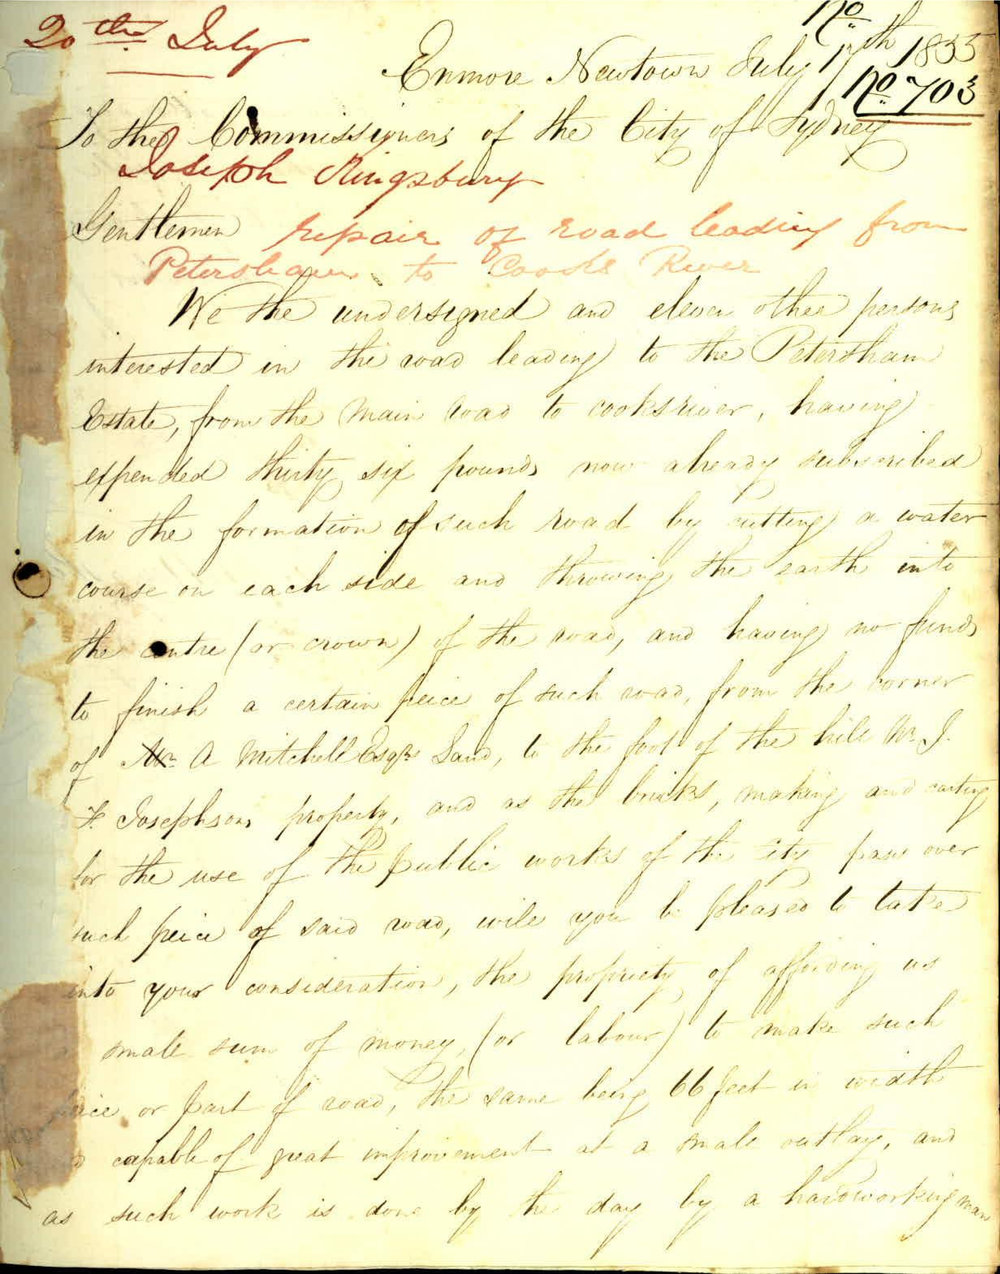 20th July
No
Enmore Newtown July 17th 1855
No 703
To the Commissioners of the City of Sydney
Joseph Kingsbury
Gentlemen repair of road leading from
Petersham to Cooks River
We the undersigned and eleven other persons
interested in the road leading to the Petersham
Estate, from the Main road to cooksriver, having
expended thirty six pounds now already subscribed
in the formation of such road by cutting a water
course on each side and throwing the earth into
the centre (or crown) of the road, and having no funds
to finish a certain peice of such road, from the corner
of Mr A Mitchell Esqr Land, to the foot of the hill Mr J.
F. Josephsons property, and as the bricks, making and carting
for the use of the public works of the city pass over
such peice of said road, will you be pleased to take
into your consideration, the propriety of affording us
a small sum of money, (or labour) to make such
peice or part of road, the same being 66 feet in width
and capable of great improvement at a small outlay, and
as such work is done by the day by a hardworking man